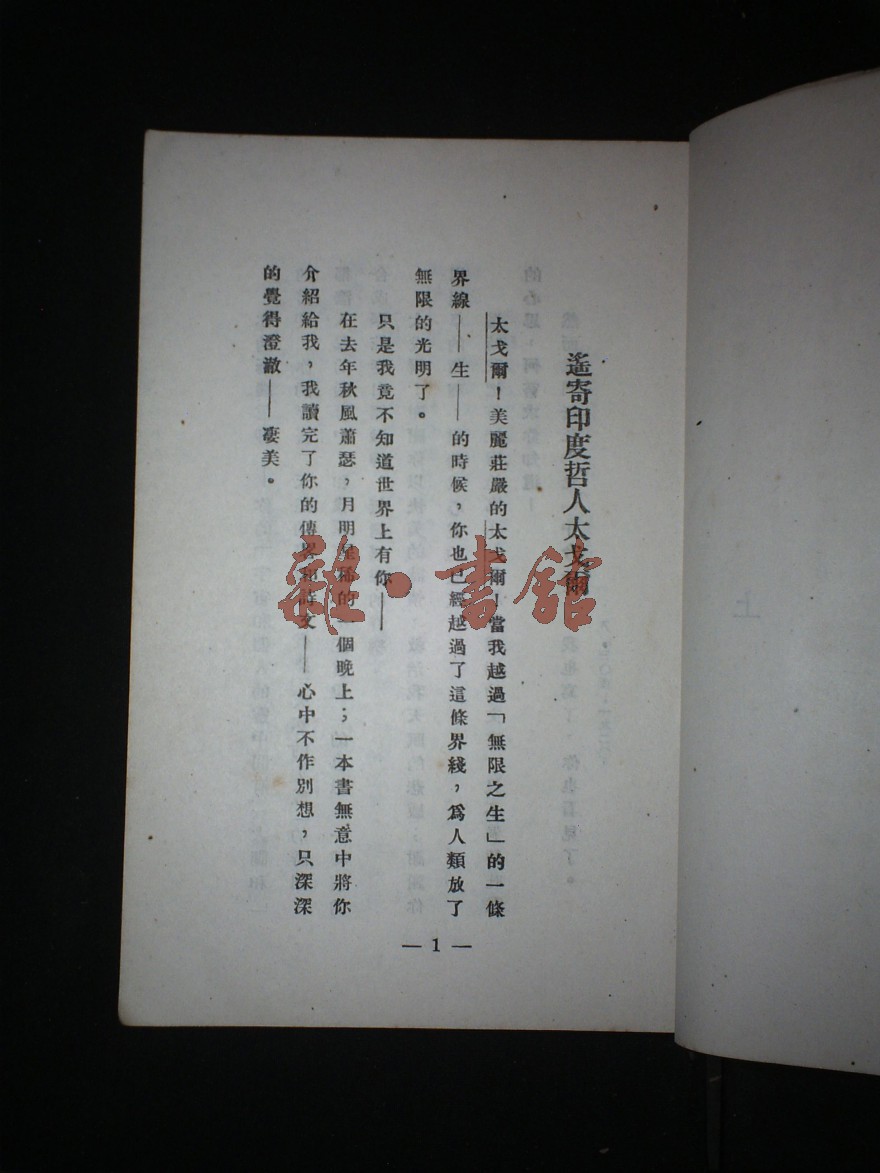 遙寄印度哲人太戈爾
太戈爾！美麗莊嚴的太戈爾！當我越過「無限之生」的一條
界線——生——的時候，你也已經越過了這條界綫，爲人類放了
無限的光明了。
只是我竟不知道世界上有你——
在去年秋風蕭瑟，月明星稀的一個晚上；一本書無意中將你
介紹給我，我讀完了你的傳畧和詩文——心中不作別想，只深深
的覺得澄澈——凄美。
— 1 —
雜·書館
上